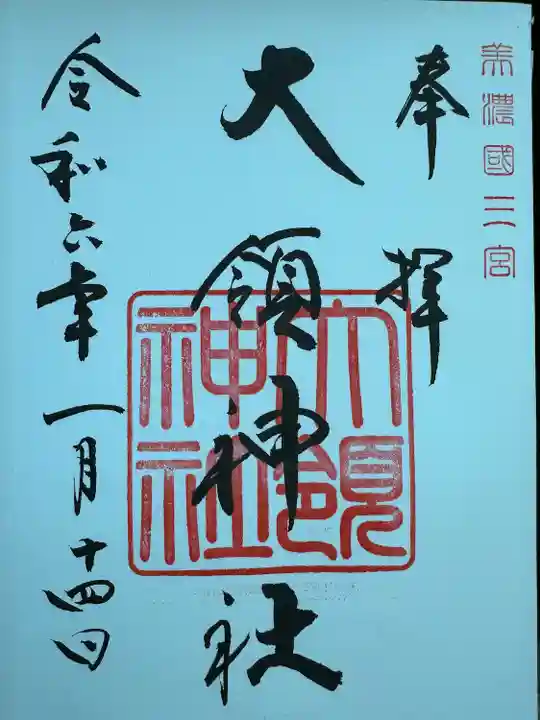 美濃國三宮
奉拝
大領神社
大領神社
令和六年一月十四日